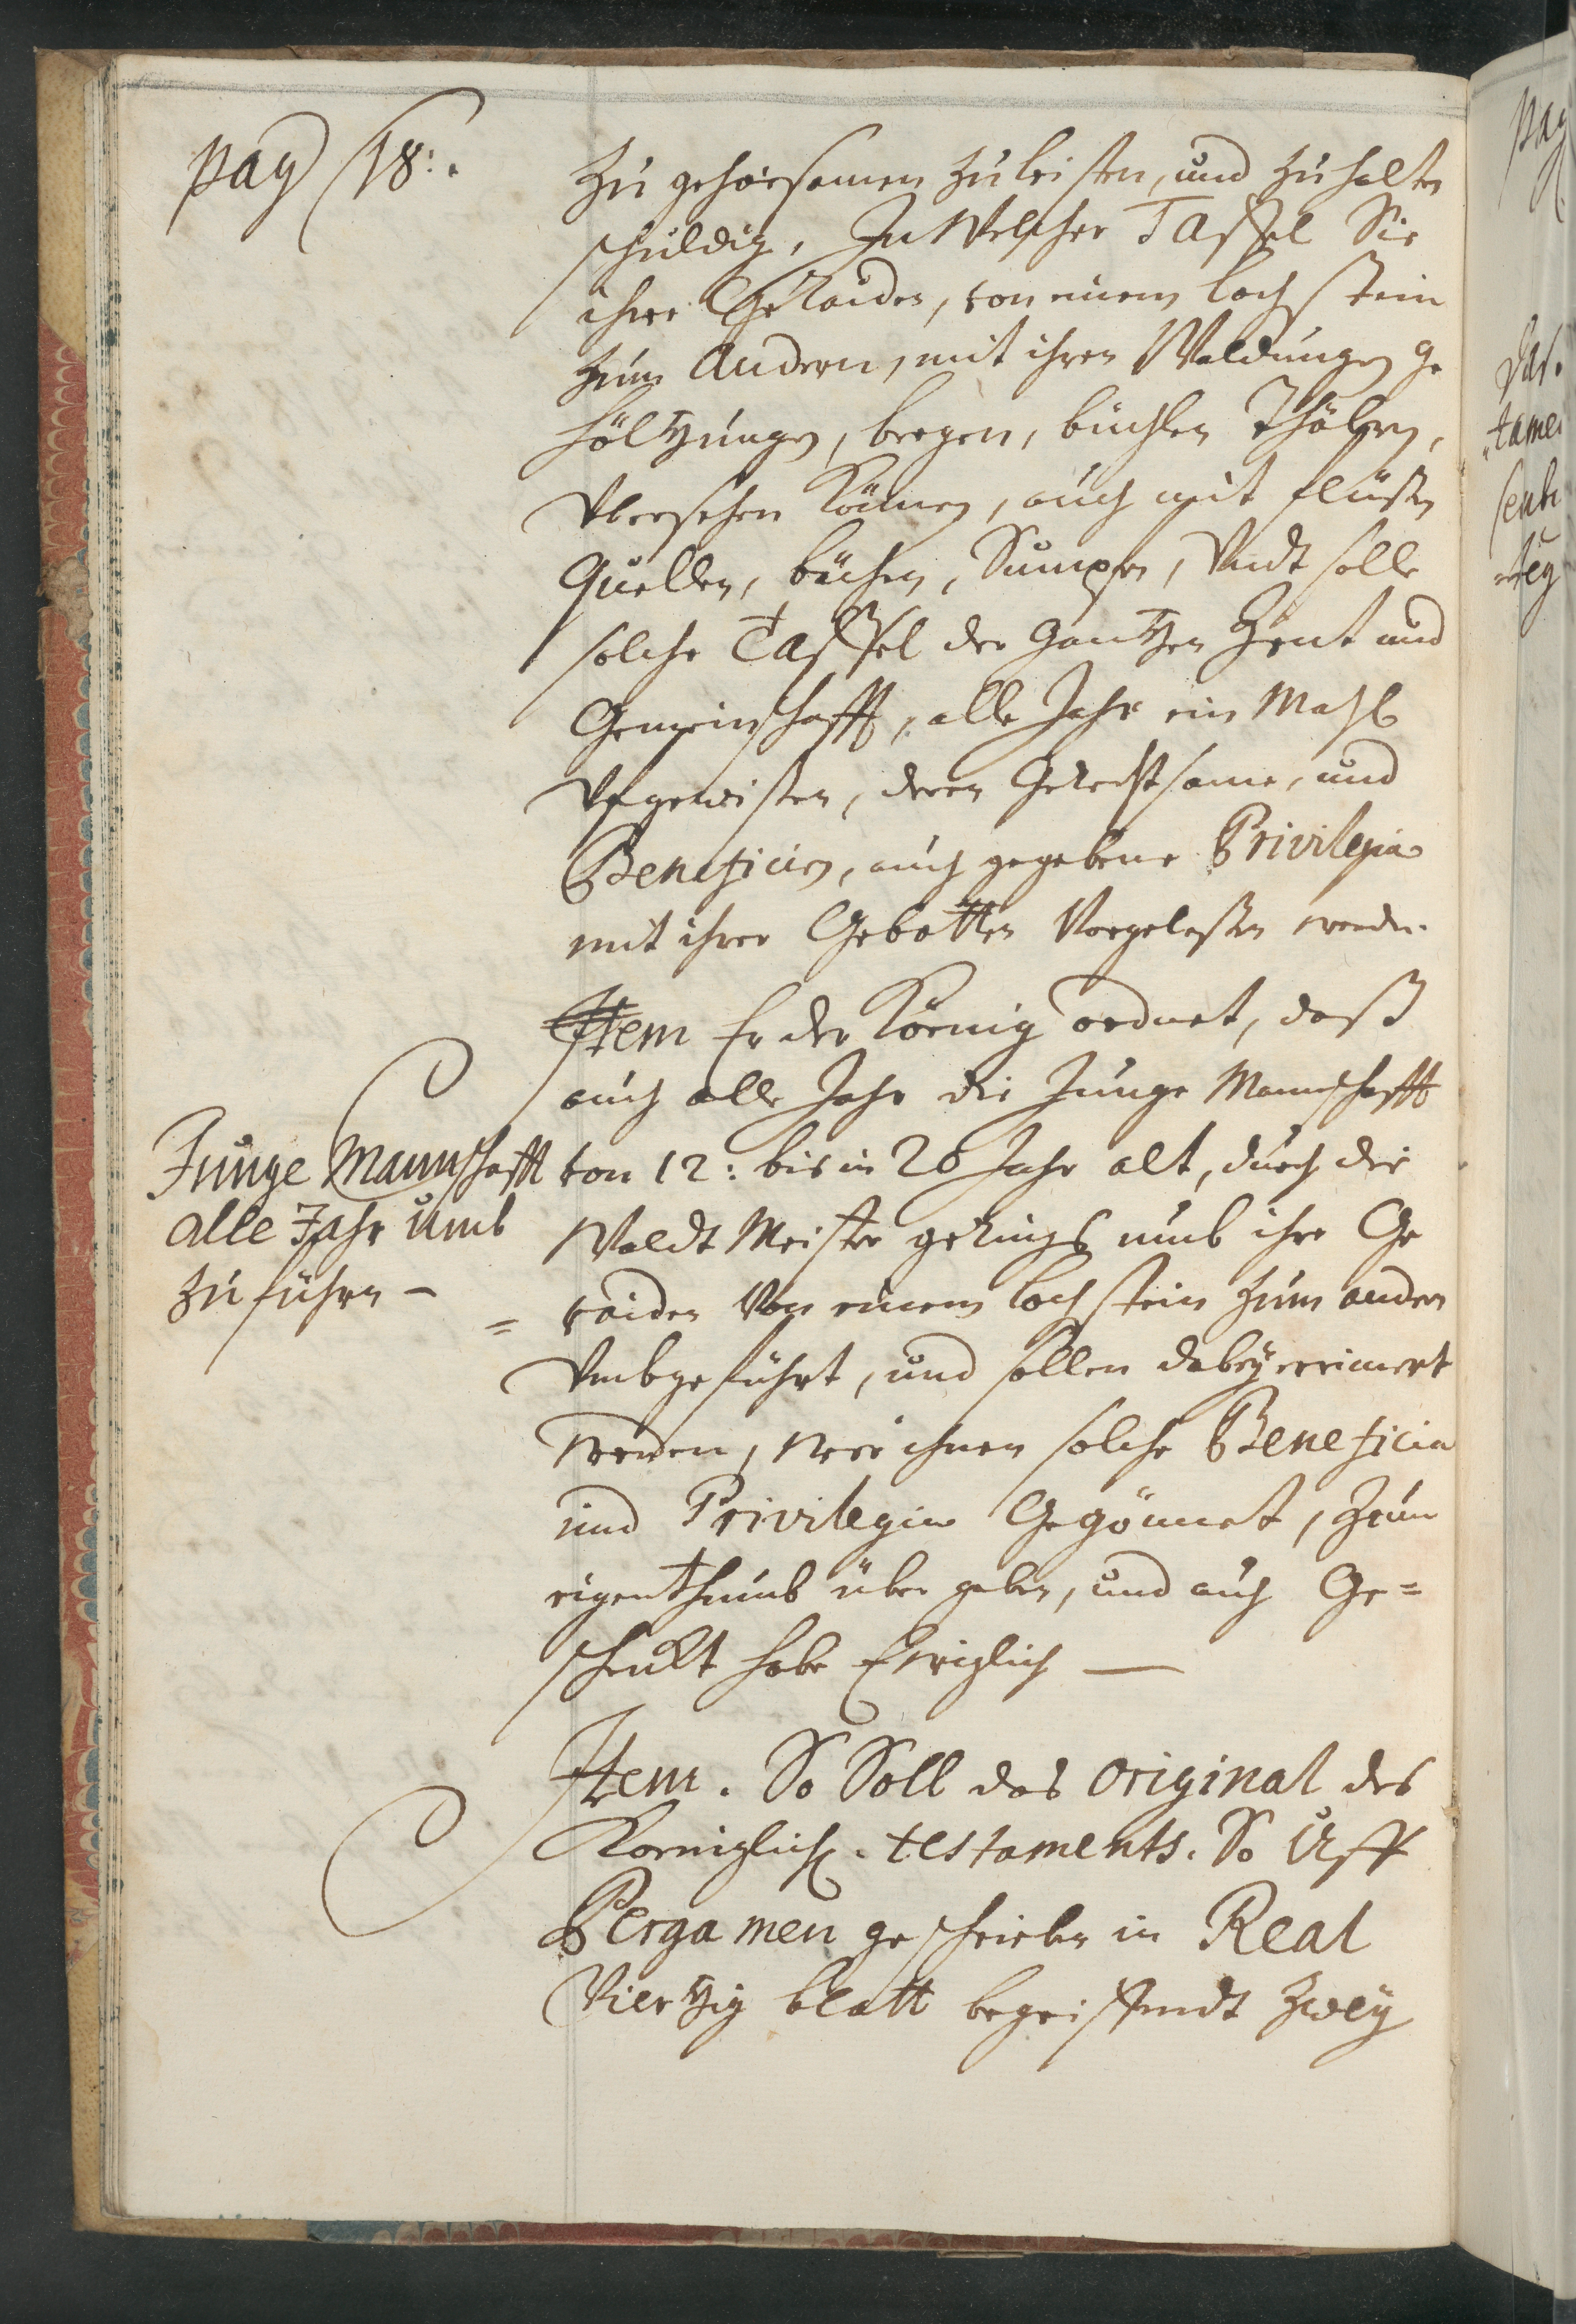 pag 18:.
zu gehorsamen zu leisten, und zu halten
schuldig, In Welcher Taffel Sie
ihre Geraiden, von einem lochstein
zum Andern, mit ihren Waldungen ge
höltzungen, bergen, büchlen Thälern,
Ubersehen können, auch mit flüßen
Quellen, bächen, Sumpfen, Undt solle
solche Taffel der gantzen Zent und
Gemeinschafft, alle Jahr ein Mahl
Ufgewisen, deren Gerechtsame, und
Beneficien, auch gegebene Privilegia
mit ihren Gebotten Vorgelesen werden.
Item Er der Koenig ordnet, daß
auch alle Jahr die Junge Mannschafft
Junge Mannschafft
alle Jahr umb
zu führen –
von 12: bis in 20 Jahr alt, durch die
Waldt Meister gerings umb ihre Ge
= raiden Von einem lochstein zum andern
Umbgeführt, und sollen dabey errinnert
werden, wer ihnen solche Beneficia
und Privilegia Gegönnet, Zum
eigenthumb über geben, und auch Ge=
schenckt habe Ewiglich —
Item. So Soll das original des
Koeniglich. testaments. So Uff
Pergamen geschrieben in Real
Viertzig blatt begreiffendt zwey